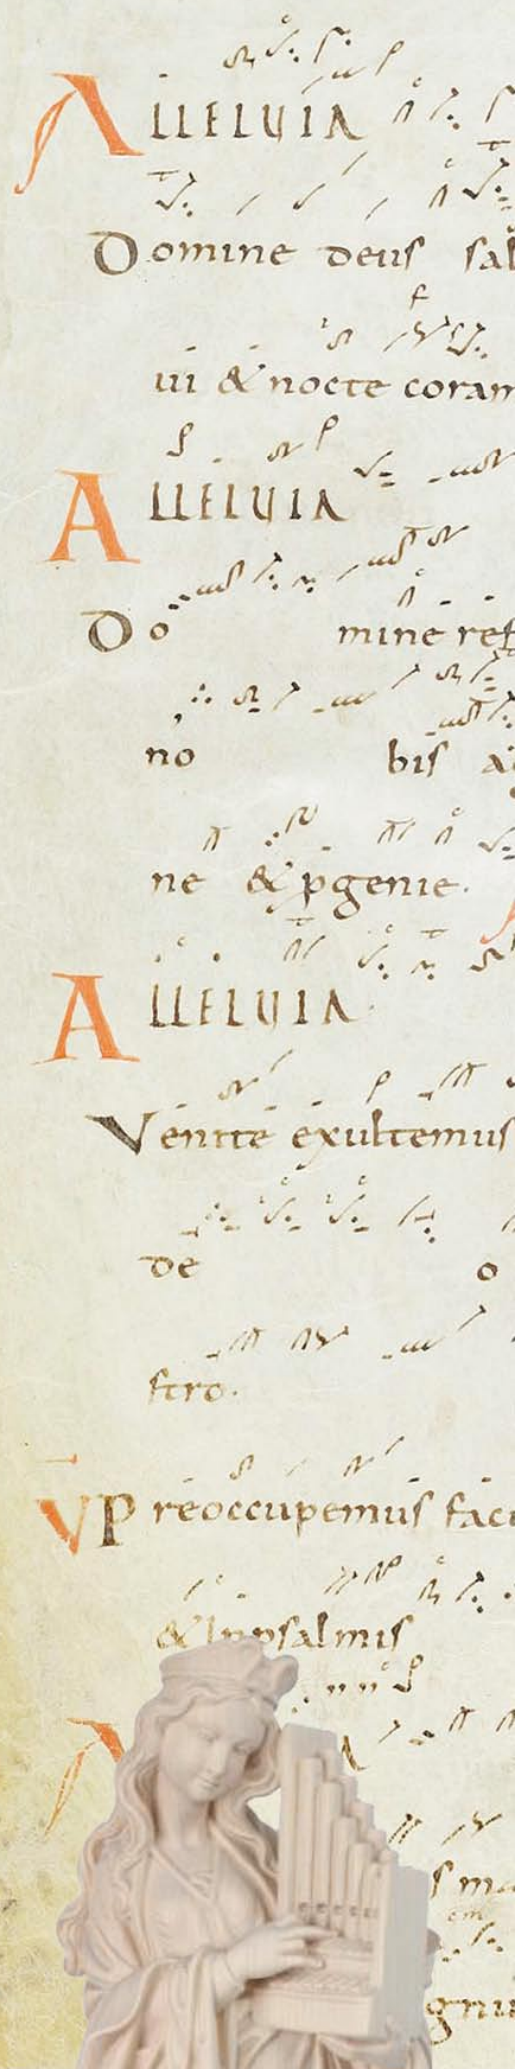 ALLELUIA
Domine deus sal
ui & nocte coram
ALLELUIA
Do mine ref
no bis a
ne & pgenie.
ALLELUIA
Venite exultemus
de o
stro.
V Preoccupemus faci
& In psalmis
A A
s ma
gnu